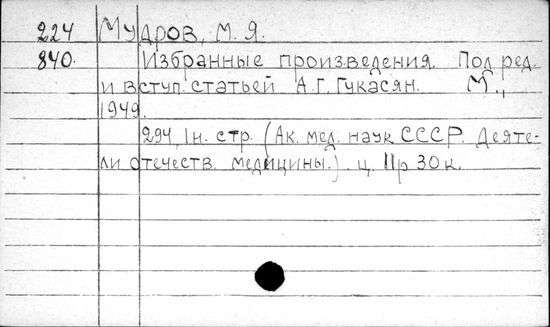 224 Мудров, М. Я.
840. Избранные произведения. Под ред.
и вступ. статьей А. Г. Гукасян. М.,
1949.
294, 1н. стр. (Ак. мед. наук СССР. Деяте-
ли отечеств. медицины.). ц. 11р 30к.